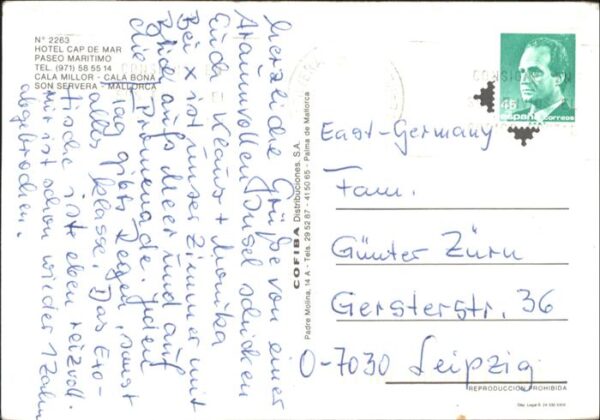 Nº 2263
HOTEL CAP DE MAR
PASEO MARITIMO
TEL. (971) 58 55 14
CALA MILLOR - CALA BONA
SON SERVERA - MALLORCA
Herzliche Grüße von einer
traumvollen Insel schicken
Euch Klaus + Monika
Bei x ist unser Zimmer mit
Blick aufs Meer und auf
die Promenade. Jeden
Tag gibts Regen, sonst
alles klasse. Das Exo-
tische ist eben reizvoll.
mir ist schon wieder 1 Zahn
abgebrochen.
COFIBA Distribuciones, S.A.
Padre Molina, 14 A - Tels. 29 52 87 - 41 50 65 - Palma de Mallorca
45
españa correos
East-Germany
Fam.
Günter Zürn
Gersterstr. 36
O-7030 Leipzig
REPRODUCCIÓN PROHIBIDA